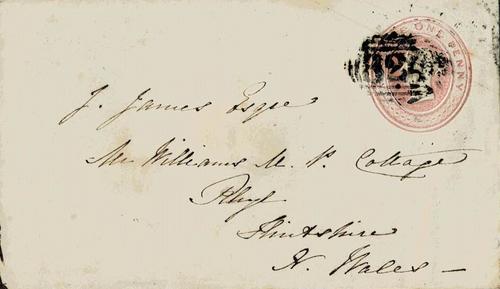 ONE PENNY
J. James Esqre
Mr Williams M. P. Cottage
Rhyl
Flintshire
N. Wales –